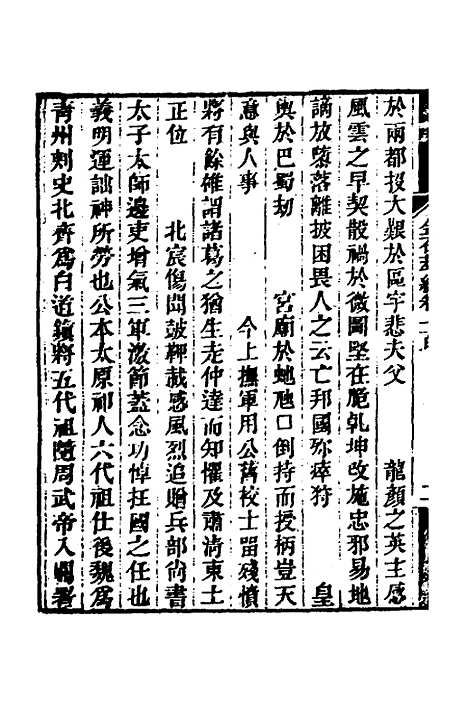 於兩都授大艱於區宇悲夫父　　龍顏之英主感
風雲之早契散禍於微圖堅在脆乾坤改施忠邪易地
謫放墮落離披困畏人之云亡邦國殄瘁狩　　皇
輿於巴蜀劫　　宮廟於虵虺口倒持而授柄豈天
意與人事　　今上撫軍用公舊校士畱殘憤
將有餘確謂諸葛之猶生走仲達而知懼及肅清東土
正位　　北宸傷聞鼓鞞載感風烈追贈兵部尚書
太子太師邊吏增氣三軍激節蓋念功悼抂國之任也
義明運詘神所勞也公本太原祁人六代祖仕後魏爲
青州刺史北齊爲白道鎮將五代祖隨周武帝入關署